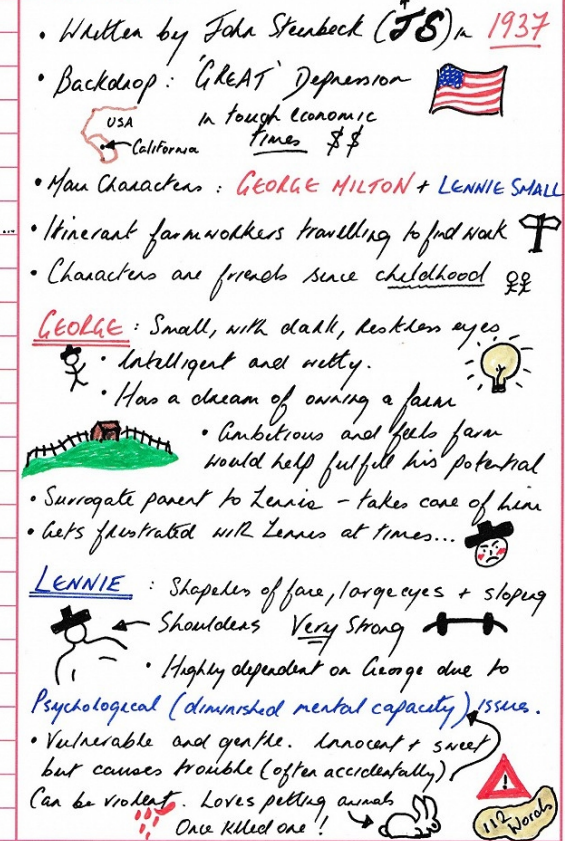 • Written by John Steinbeck (JS) in 1937
• Backdrop : 'GREAT' Depression
in tough economic
times $$
USA
California
• Main Characters : GEORGE MILTON + LENNIE SMALL
• Itinerant farmworkers travelling to find work
• Characters are friends since childhood
GEORGE : Small, with dark, restless eyes
• Intelligent and witty.
• Has a dream of owning a farm
• Ambitious and feels farm
would help fulfill his potential
• Surrogate parent to Lennie – takes care of him
• Gets frustrated with Lennie at times...
LENNIE : Shapeless of face, large eyes + sloping
Shoulders Very Strong
• Highly dependent on George due to
Psychological (diminished mental capacity) issues.
• Vulnerable and gentle. Innocent + sweet
but causes trouble (often accidentally)
Can be violent. Loves petting animals
Once killed one!
!
112
Words